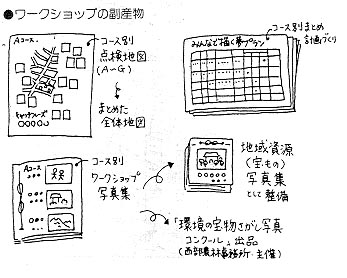 ●ワークショップの副産物
Aコース
キャッチフレーズ
コース別
点検地図
(A〜G)
まとめた
全体地図
みんなで描く夢プラン
コース別まとめ
計画づくり
Aコース
コース別
ワークショップ
写真集
地域資源
(宝もの)
写真集
として整備
「環境の宝物さがし写真
コンクール」出品
(西部農林事務所・主催)